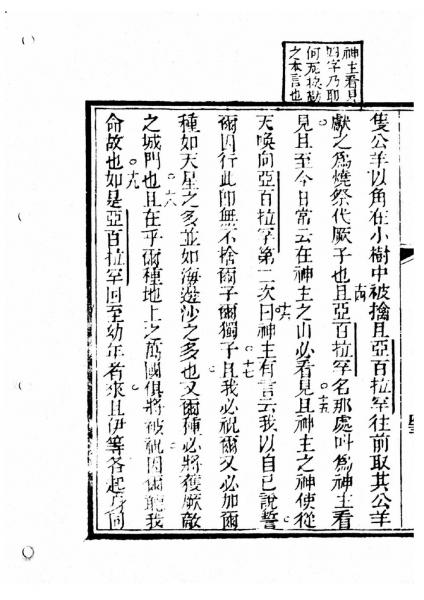 神主看見
四字乃耶
何瓦挨勒
之本言也
隻公羊以角在小樹中被擒且亞百拉罕往前取其公羊
獻之為燒祭代厥子也十四且亞百拉罕名那處叫為神主看
見且至今日常云在神主之山必看見十五且神主之神使從
天喚向亞百拉罕第二次曰十六神主有言云我以自己說誓
爾因行此而無不捨爾子爾獨子十七且我必祝爾又必加爾
種如天星之多並如海邊沙之多也又爾種必將獲厥敵
之城門也十八且在乎爾種地上之萬國俱將被祝因爾聽我
命故也十九如是亞百拉罕回至幼年者來且伊等各起身同